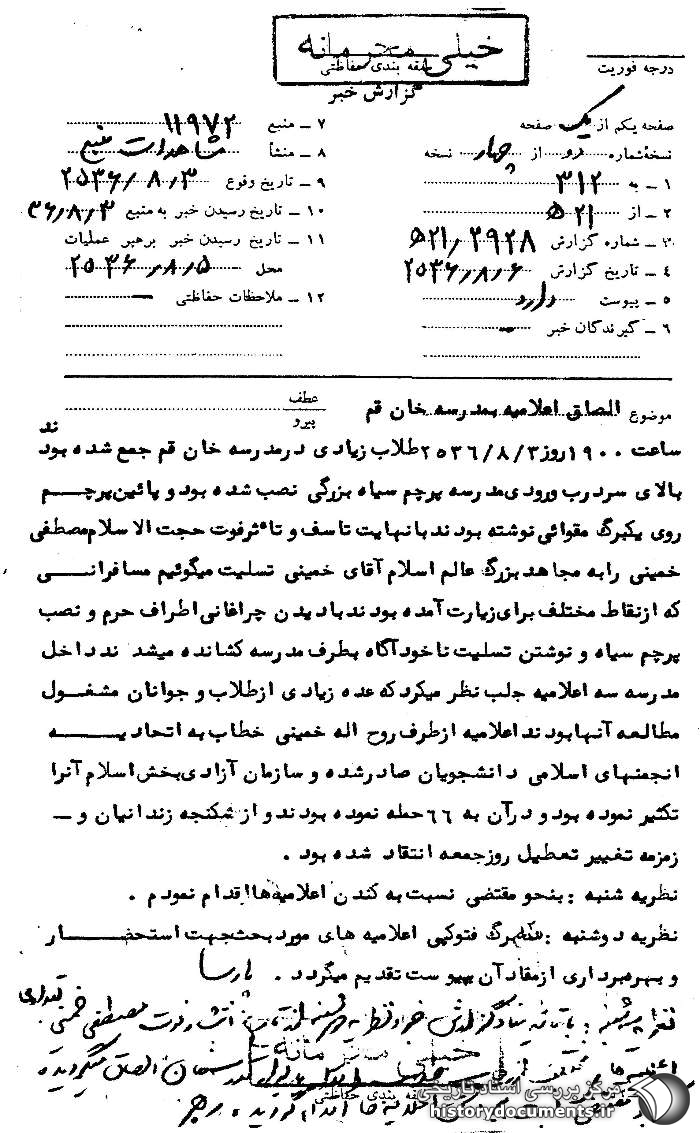 خیلی محرمانه
طبقه بندی حفاظتی
درجه فوریت
گزارش خبر
صفحه یکم از یک صفحه
نسخه شماره دو از چهار نسخه
۱ ـ به ۳۱۲
۲ ـ از ۵۲۱
۳ ـ شماره گزارش ۲۹۲۸/ ۵۲۱
۴ ـ تاریخ گزارش ۲۵۳۶/۸/۶
۵ ـ پیوست دارد
۶ ـ گیرندگان خبر ـ
۷ ـ منبع ۱۱۹۷۲
۸ ـ منشأ مشاهدات منبع
۹ ـ تاریخ وقوع ۲۵۳۶/۸/۳
۱۰ ـ تاریخ رسیدن خبر به منبع ۳۶/۸/۳
۱۱ ـ تاریخ رسیدن خبر برهبر عملیات
محل ۲۵۳۶/۸/۵
۱۲ ـ ملاحظات حفاظتی ـ
موضوع الصاق اعلامیه بمدرسه خان قم
عطف
پیرو
ساعت ۱۹۰۰ روز ۲۵۳۶/۸/۳ طلاب زیادی در مدرسه خان قم جمع شده بودند
بالای سردرب ورودی مدرسه پرچم سیاه بزرگی نصب شده بود و پائین پرچم
روی یکبرگ مقوائی نوشته بودند بانهایت تاسف و تاثر فوت حجت الاسلام مصطفی
خمینی را به مجاهد بزرگ عالم اسلام آقای خمینی تسلیت میگوئیم مسافرانی
که ازنقاط مختلف برای زیارت آمده بودند بادیدن چراغانی اطراف حرم و نصب
پرچم سیاه و نوشتن تسلیت ناخودآگاه بطرف مدرسه کشانده میشدند داخل
مدرسه سه اعلامیه جلب نظر میکرد که عده زیادی ازطلاب و جوانان مشغول
مطالعه آنها بودند اعلامیه ازطرف روح اله خمینی خطاب به اتحادیه
انجمنهای اسلامی دانشجویان صادر شده و سازمان آزادی بخش اسلام آنرا
تکثیر نموده بود و در آن به ۶۶ حمله نموده بودند و از شکنجه زندانیان و ـ
زمزمه تغییر تعطیل روز جمعه انتقاد شده بود .
نظریه شنبه : بنحو مقتضی نسبت به کندن اعلامیه‌ها اقدام نمودم .
نظریه دوشنبه : سه برگ فتوکپی اعلامیه های مورد بحث جهت استحضار
و بهره‌برداری ازمفاد آن پیوست تقدیم میگردد . پارسا
خیلی محرمانه
طبقه بندی حفاظتی
مرکز بررسی اسناد تاریخی
historydocuments.ir